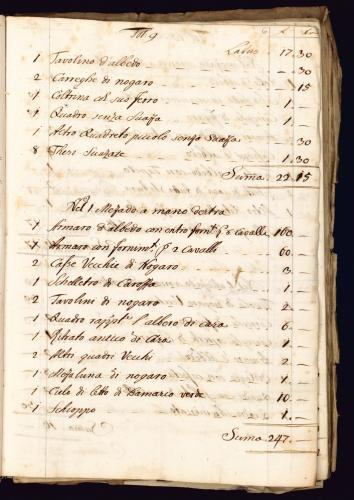 1 Tavolino d'albeo — 30
2 Careghe di nogaro — 15
1 Coltrina col suo ferro 1 —
1 Quadro senza suaffa 1 —
1 Altro Quadreto piccolo senza suaffa — 30
8 Thesi Suazate 1 30
Suma 22 15
Nel Mezado a mano destra
1 Armaro d'albedo con entro 6 cavalli 160 —
1 Armaro con 2 Cavalli 60 —
2 Casse Vecchie di Nogaro 3 —
1 Scheletro di Caroffa 1 —
2 Tavolini di nogaro 2 —
1 Quadro l'albero di casa 6 —
1 Ritrato antico di casa 1 —
2 Altri quadri Vecchi 2 —
1 Mezaluna di nogaro 1 —
1 Cielo di letto di Damasco verde 10 —
1 Schioppo 1 —
Suma 247 —